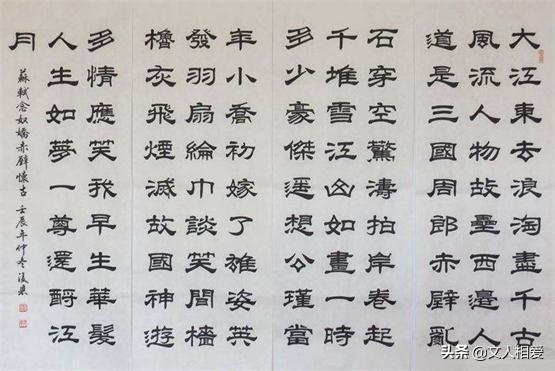 大江東去浪淘盡千古
風流人物故壘西邊人
道是三國周郎赤壁亂
石穿空驚濤拍岸卷起
千堆雪江山如畫一時
多少豪傑遥想公瑾當
年小喬初嫁了雄姿英
發羽扇綸巾談笑間檣
櫓灰飛煙滅故國神遊
多情應笑我早生華髮
人生如夢一尊還酹江
月
蘇軾念奴嬌赤壁懷古 壬辰年仲冬
头条 @文人相爱